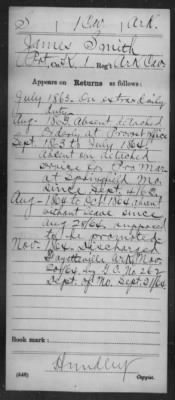 S | 1 Cav. | Ark.
James Smith
Pvt, Co. K, Reg't Ark Cav
Appears on Returns as follows:
July 1863. On extra daily
duty
Aug. 1863 Absent detached
Orderly at Provost office
Sept. 1863 to July 1864
absent on detached
service for Pro. Mar.
at Springfield Mo.
since Sept. 4/63
Aug - 1864 to Oct 1864 absent
without leave since
Aug 20/64 supposed
to be promoted
Nov. 1864. Discharged
Fayetteville Ark Nov.
20/64 by G.O. No 262
Dept. of Mo. Sept 3/64
Book mark:
Hundley
(546) Copyist.